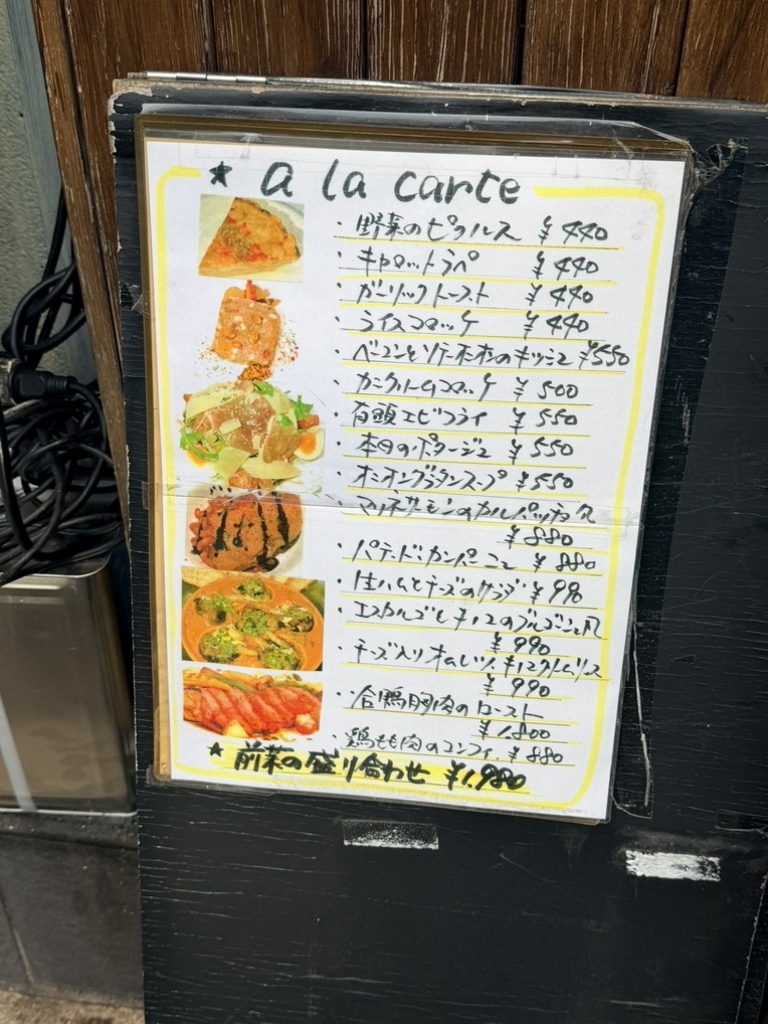 ★ a la carte
・野菜のピクルス ¥440
・キャロットラペ ¥440
・ガーリックトースト ¥440
・ライスコロッケ ¥440
・ベーコンとソテーオニオンのキッシュ ¥550
・カニクリームコロッケ ¥500
・有頭エビフライ ¥550
・本日のポタージュ ¥550
・オニオングラタンスープ ¥550
・マリネサーモンのカルパッチョ風
¥880
・パテ・ド・カンパーニュ ¥880
・生ハムとチーズのサラダ ¥990
・エスカルゴとキノコのブルゴーニュ風
¥990
・チーズ入りオムレツ、キノコクリームソース
¥990
・合鴨胸肉のロースト
¥1,800
・鶏もも肉のコンフィ、¥880
★ 前菜の盛り合わせ ¥1,980